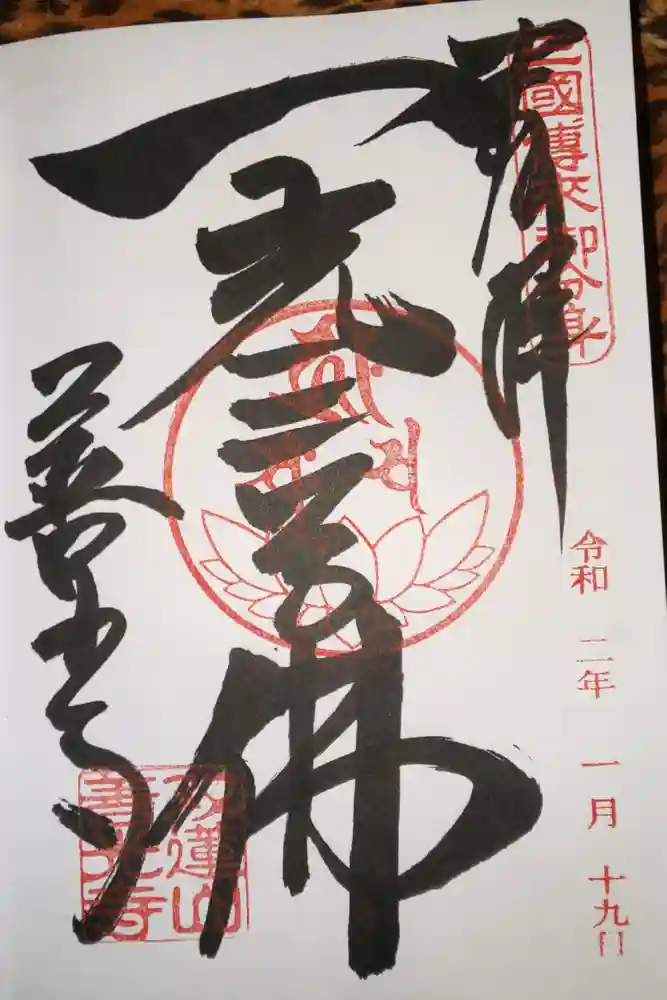 三國傳来御分身
奉拝
令和 二年 一月 十九日
一光三尊佛
善光寺
双蓮山
善光寺